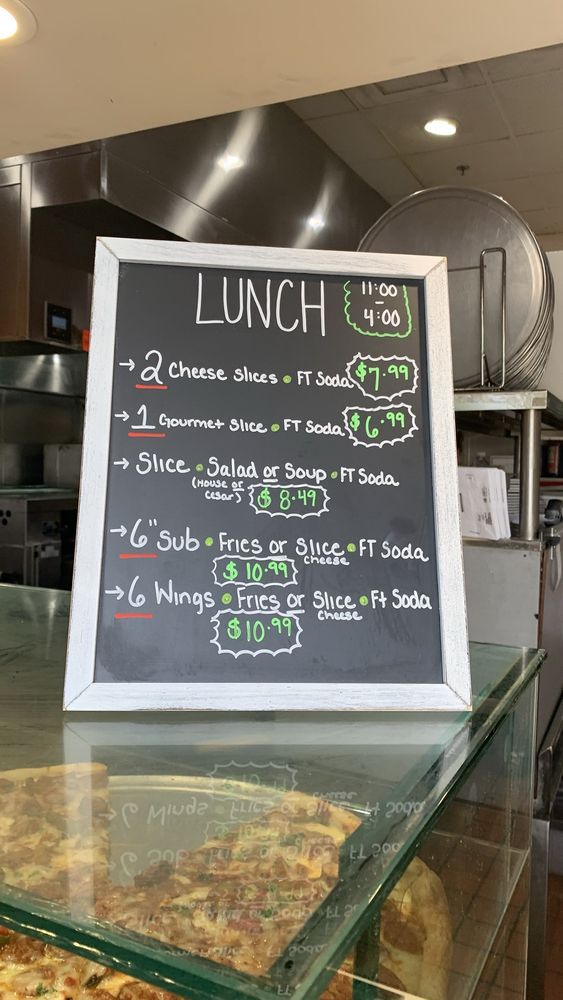 LUNCH
11:00
-
4:00
→ 2 Cheese Slices • FT Soda $7.99
→ 1 Gourmet Slice • FT Soda $6.99
→ Slice • Salad or Soup • FT Soda
(House or
Cesar) $8.49
→ 6" Sub • Fries or Slice • FT Soda
Cheese
$10.99
→ 6 Wings • Fries or Slice • Ft Soda
Cheese
$10.99